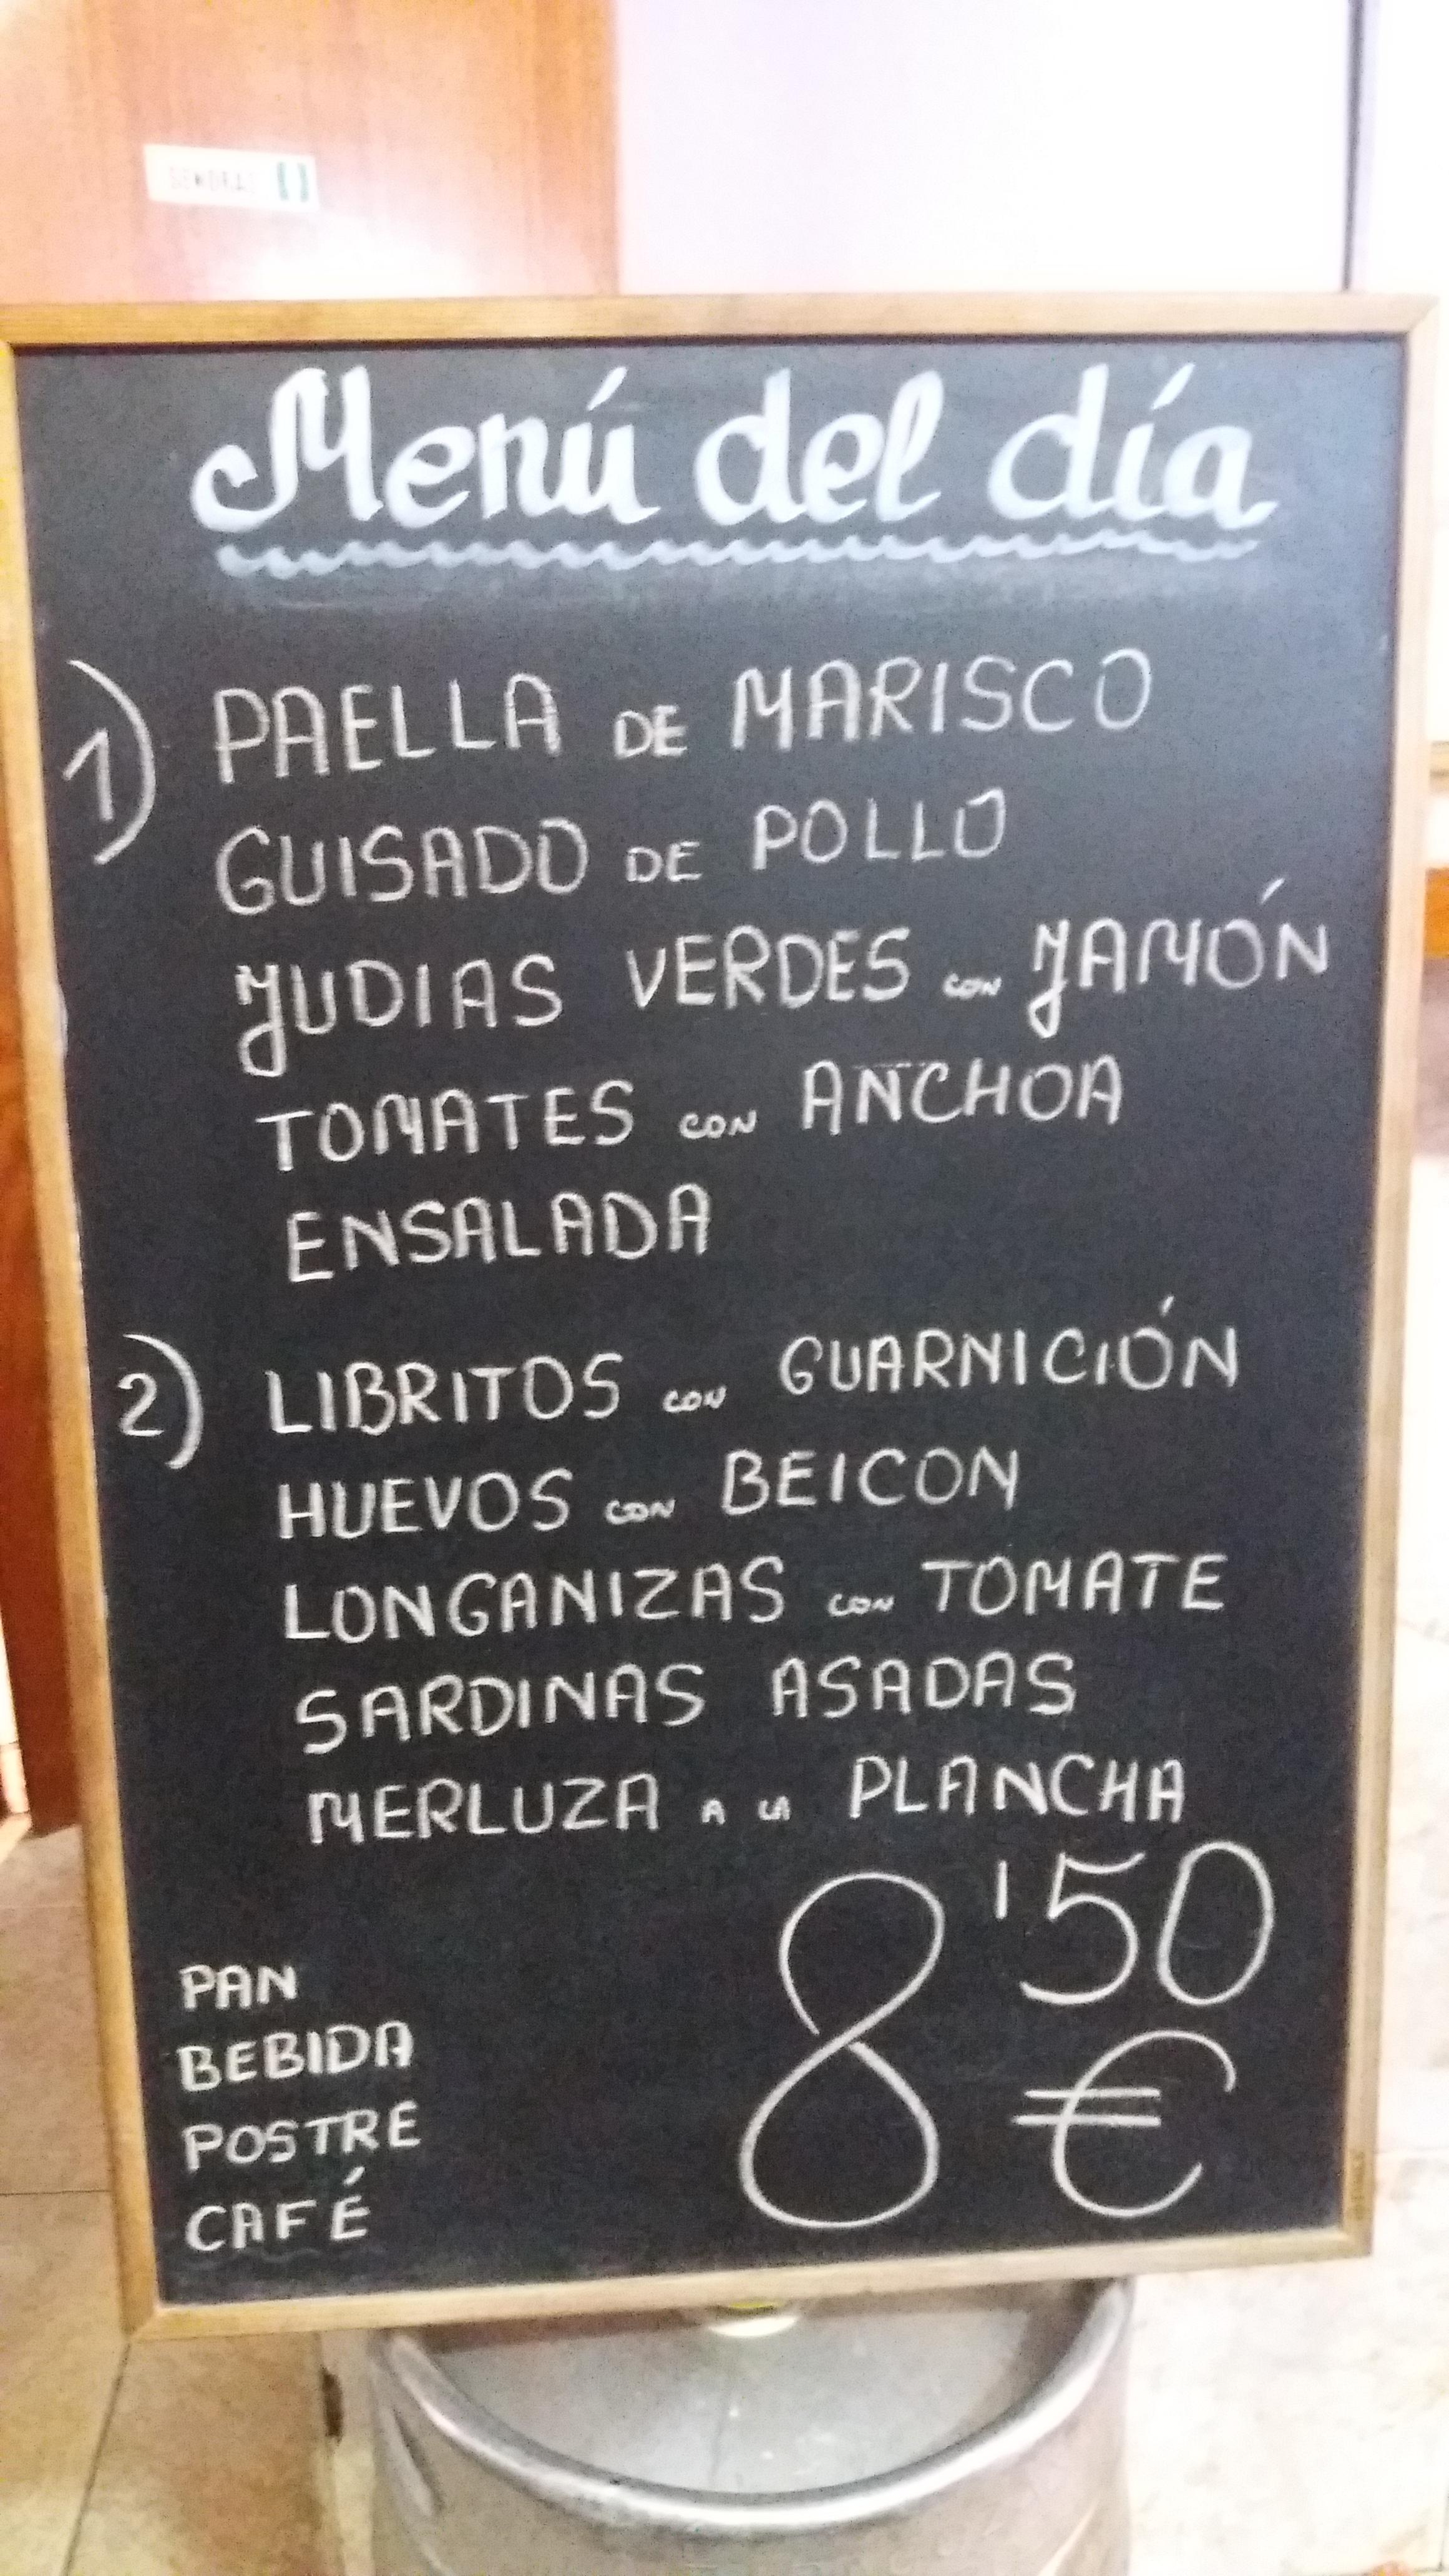 SEÑORAS
Menú del día
1) PAELLA DE MARISCO
GUISADO DE POLLO
JUDIAS VERDES CON JAMÓN
TOMATES CON ANCHOA
ENSALADA
2) LIBRITOS CON GUARNICIÓN
HUEVOS CON BEICON
LONGANIZAS CON TOMATE
SARDINAS ASADAS
MERLUZA A LA PLANCHA
8'50 €
PAN
BEBIDA
POSTRE
CAFÉ